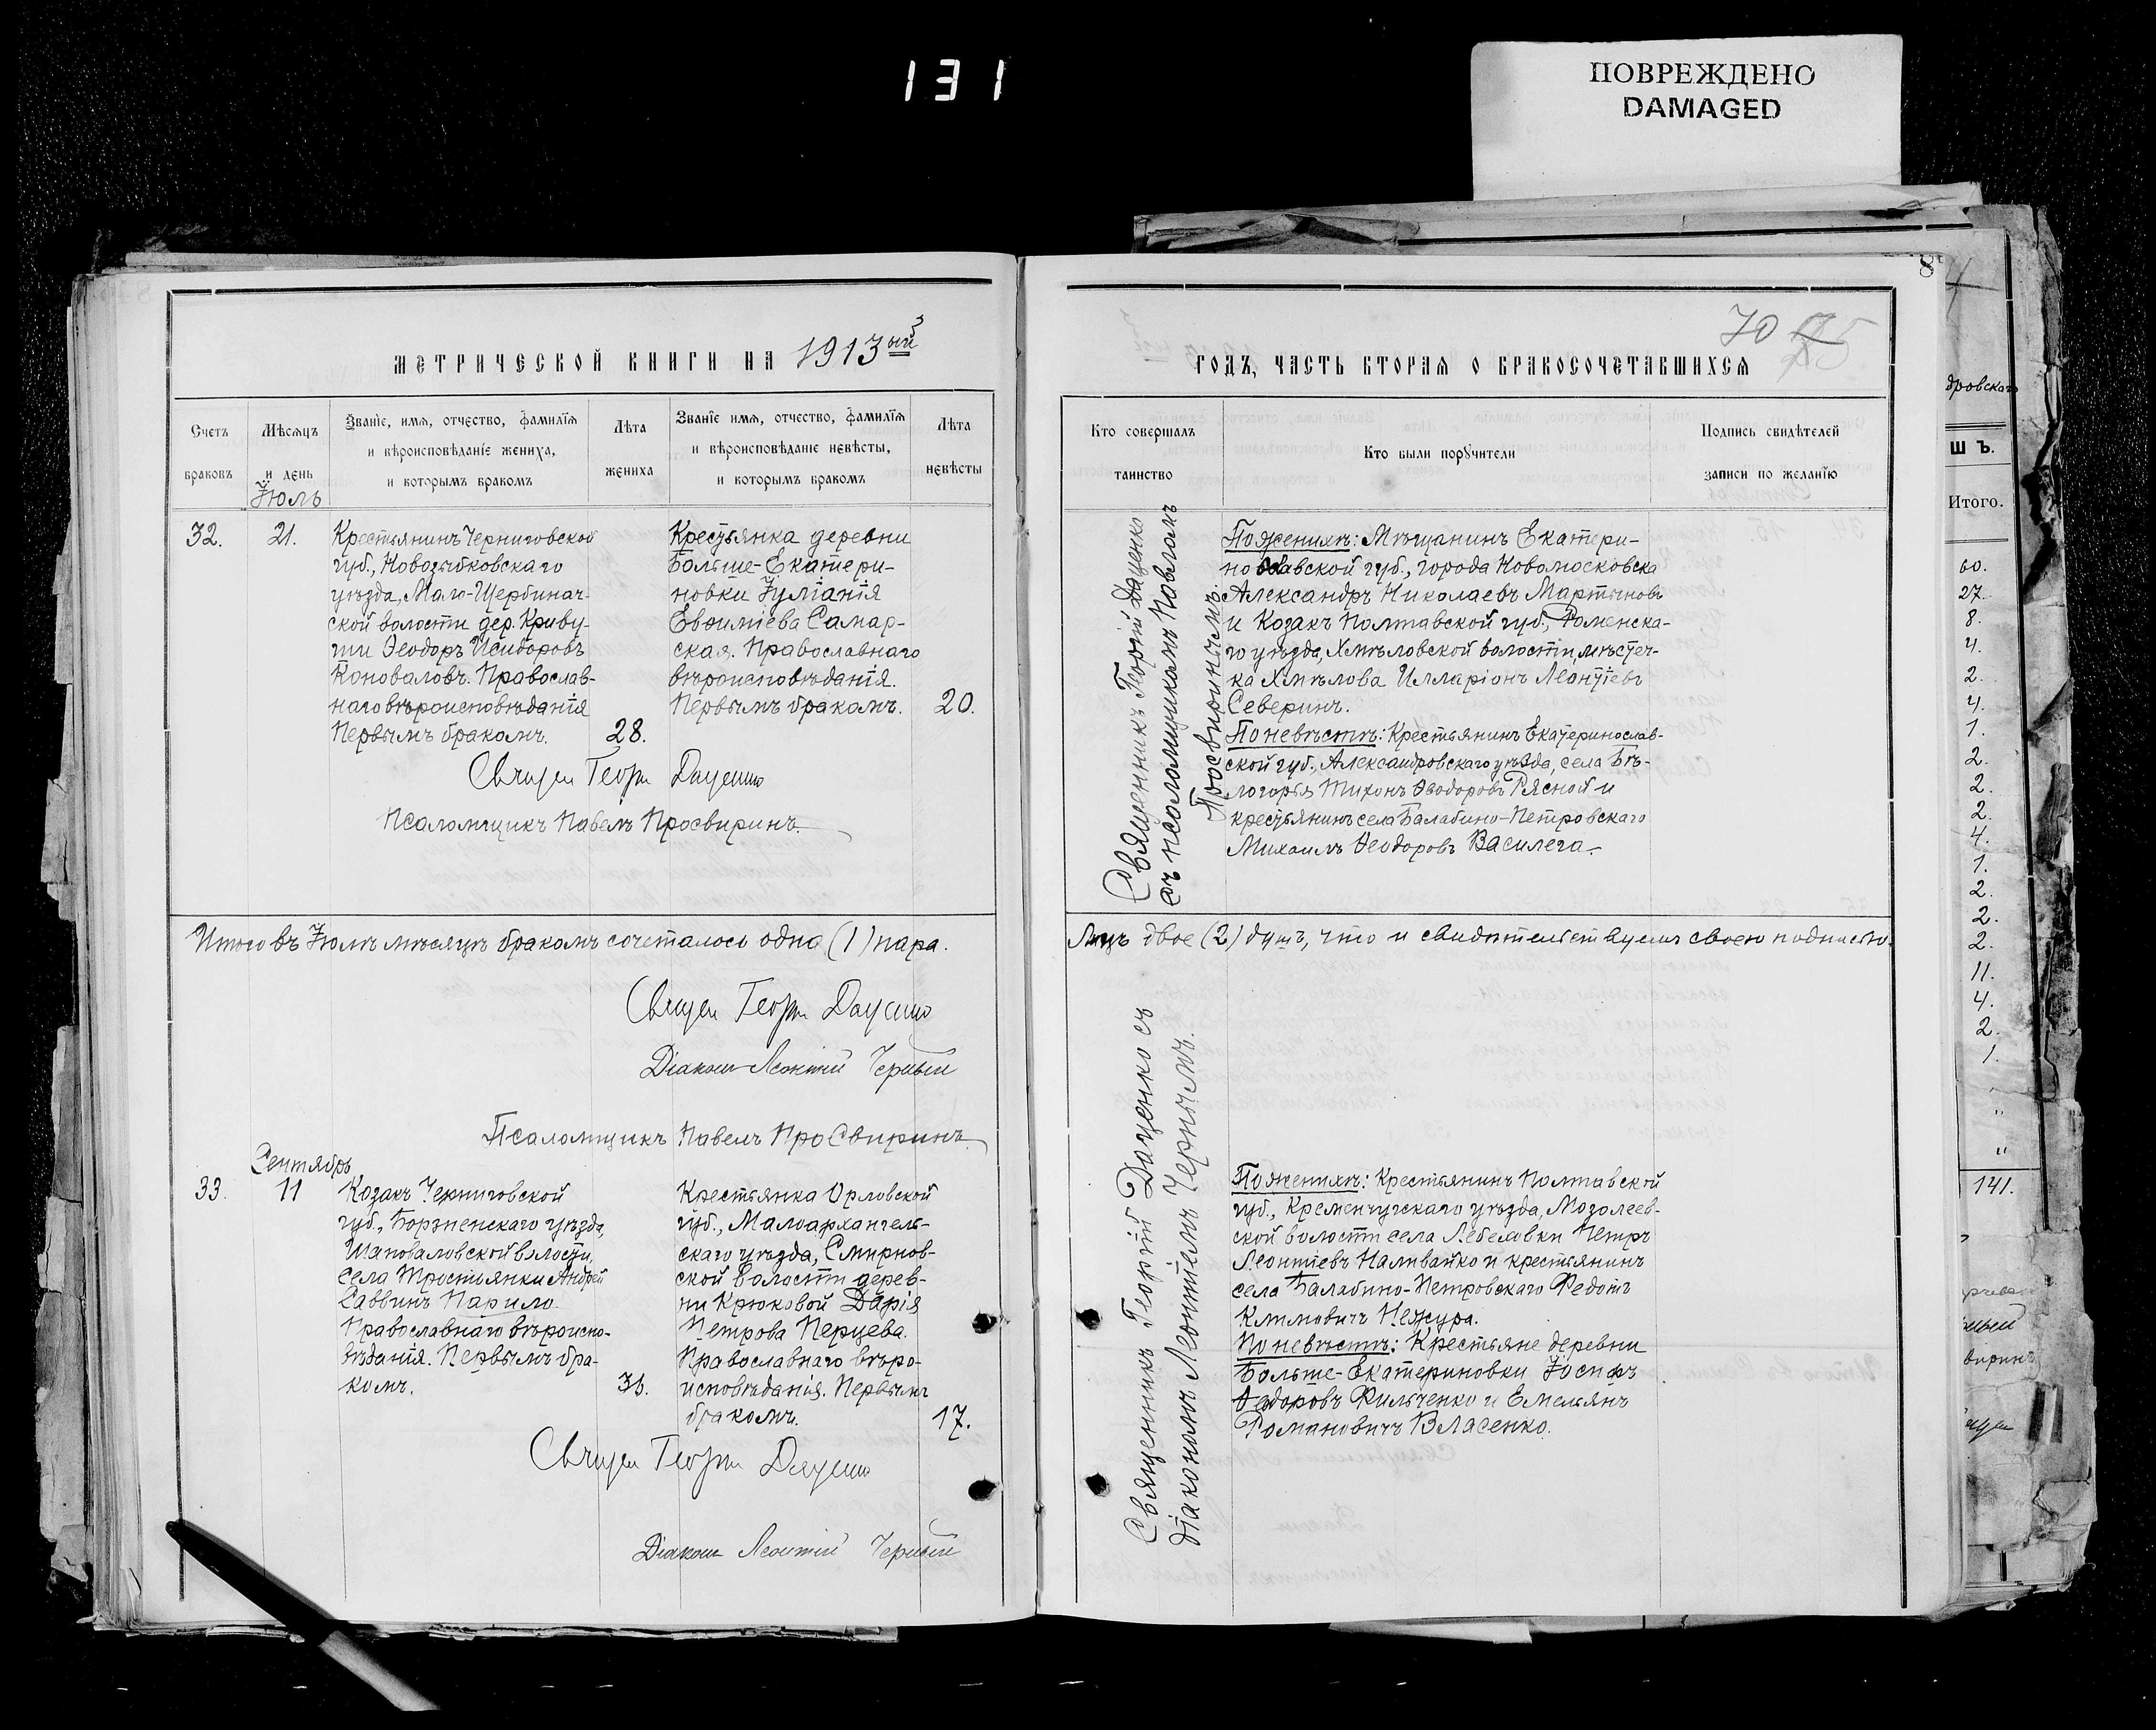 131
ПОВРЕЖДЕНО
DAMAGED
МЕТРИЧЕСКОЙ КНИГИ НА 1913 ый
Счетъ браковъ
Мѣсяцъ и день
Званіе, имя, отчество, фамилія и вѣроисповѣданіе жениха, и которымъ бракомъ
Лѣта жениха
Званіе имя, отчество, фамилія и вѣроисповѣданіе невѣсты, и которымъ бракомъ
Лѣта невѣсты
Іюль
32.
21.
Крестьянинъ Черниговской
губ., Новозыбковскаго
уѣзда, Мало-Щербинач-
ской волости дер. Криву-
ши Ѳеодоръ Исидоровъ
Коноваловъ. Православ-
наго вѣроисповѣданія
Первымъ бракомъ.
28.
Крестьянка деревни
Больше-Екатери-
новки Іуліанія
Евѳиміева Самар-
ская. Православнаго
вѣроисповѣданія.
Первымъ бракомъ.
20.
Священ Георгій Даценко
Псаломщикъ Павелъ Просвиринъ.
Итого въ Іюлѣ мѣсяцѣ бракомъ сочеталось одна (1) пара.
Священ Георгій Даценко
Діаконъ Леонтій Черный
Псаломщикъ Павелъ Просвиринъ
Сентябрь
33.
11
Козакъ Черниговской
губ., Борзненскаго уѣзда,
Шаповаловской волости,
села Тростьянки Андрей
Саввинъ Парило.
Православнаго вѣроиспо-
вѣданія. Первымъ бра-
комъ.
Крестьянка Орловской
губ., Малоархангель-
скаго уѣзда, Смирнов-
ской волости дерев-
ни Крюковой Дарія
Петрова Перцева.
Православнаго вѣро-
исповѣданія. Первымъ
бракомъ.
17.
Священ Георгій Даценко
Діаконъ Леонтій Черный
8
70
ГОДЪ, ЧАСТЬ ВТОРАЯ О БРАКОСОЧЕТАВШИХСЯ
Кто совершалъ таинство
Кто были поручители
Подпись свидѣтелей записи по желанію
Священникъ Георгій Даценко
съ псаломщикомъ Павломъ
Просвиринымъ.
По женихѣ: Мѣщанинъ Екатери-
нославской губ., города Новомосковска
Александръ Николаевъ Мартыновъ
и Козакъ Полтавской губ., Роменска-
го уѣзда, Хмѣловской волости, мѣстеч-
ка Хмѣлова Илларіонъ Леонтіевъ
Северинъ.
По невѣстѣ: Крестьянинъ Екатеринослав-
ской губ., Александровскаго уѣзда, села Бѣ-
логорья Тихонъ Ѳеодоровъ Рясной и
крестьянинъ села Балабино-Петровскаго
Михаилъ Ѳеодоровъ Василега.
Лицъ двое (2) душъ, что и свидѣтельствуемъ своею подписью.
Священникъ Георгій Даценко съ
діакономъ Леонтіемъ Чернымъ.
По женихѣ: Крестьянинъ Полтавской
губ., Кременчугскаго уѣзда, Мозолеев-
ской волости села Лебелавки Петръ
Леонтіевъ Наливайко и крестьянинъ
села Балабино-Петровскаго Федотъ
Климовичъ Нежура.
По невѣстѣ: Крестьяне деревни
Больше-Екатериновки Іосифъ
Ѳедоровъ Фильченко и Емельянъ
Романовичъ Власенко.
дровскаго
Ш Ъ.
Итого.
60.
27.
8.
4.
2.
4.
1.
2.
2.
2.
4.
1.
2.
2.
2.
11.
4.
2.
1.
"
"
141.